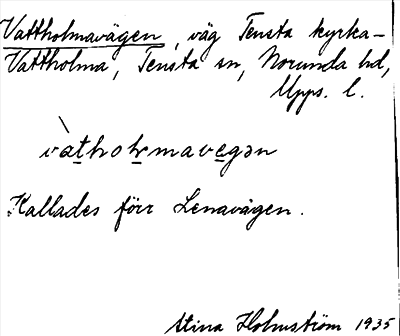 Vattholmavägen, väg Tensta kyrka-
Vattholma, Tensta sn, Norunda hd,
Upps. l.
vàtholmavegən
Kallades förr Lenavägen.
Stina Holmström 1935